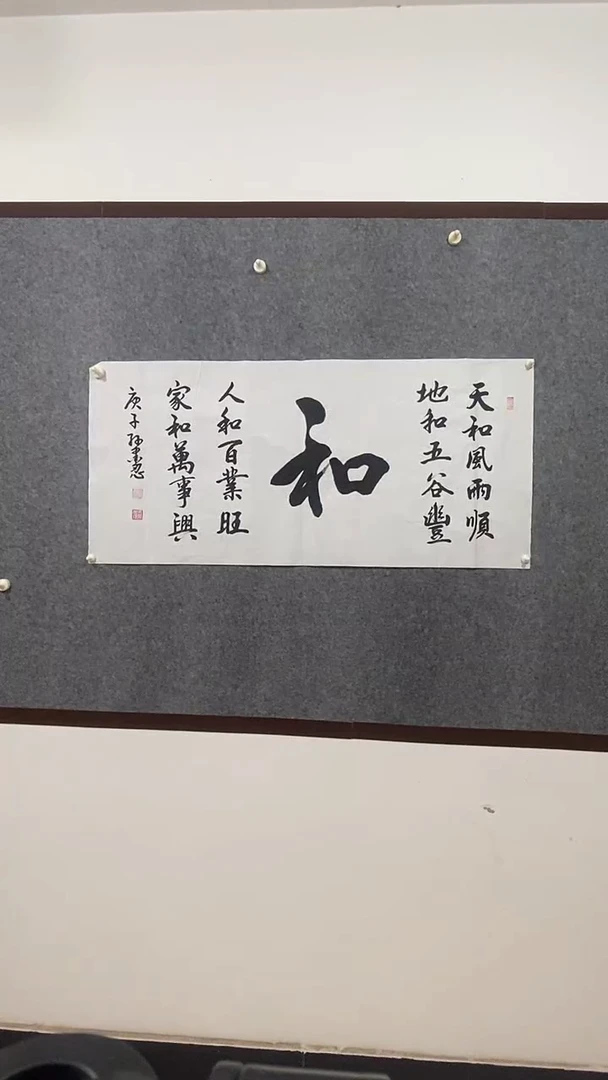 天和風雨順
地和五谷豐
和
人和百業旺
家和萬事興
庚子